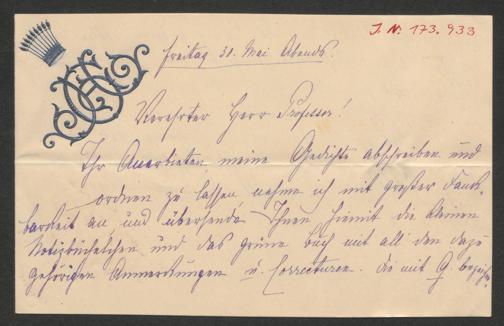 J. N. 173.933
Freitag 31. Mai Abends.
Verehrter Herr Professor!
Ihr Anerbieten, meine Gedichte abschreiben und
ordnen zu lassen nehme ich mit großer Dank-
barkeit an und übersende Ihnen hiemit die kleinen
Notizbüchelchen und das grüne Buch mit all den dazu
gehörigen Anmerkungen u. Correcturen. Die mit